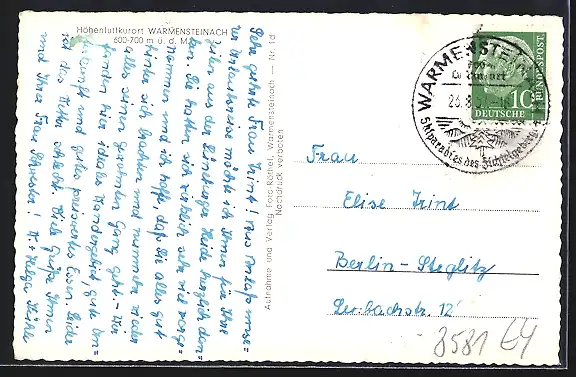 Höhenluftkurort WARMENSTEINACH
600-700 m ü. d. M.
Sehr geehrte Frau Trint! Aus Anlaß unse=
res Urlaubsreise möchte ich Ihnen für Ihre
Zeilen aus der Lüneburger Heide herzlich dan=
ken. Sie hatten sich wirklich sehr viel vorge=
nommen und ich hoffe, daß Sie alles gut
hinter sich brachten und nunmehr wieder
alles seinen gewohnten Gang geht. – Wir
fanden hier ideales Wandergebiet, gute Un=
terkunft und gutes preiswertes Essen. Leider
ist das Wetter schlecht. Viele Grüße Ihnen
und Ihrer Frau Schwester! + Helga
Aufnahme und Verlag Foto-Röthel, Warmensteinach — Nr. 1d
Nachdruck verboten
WARMENSTEINACH
Luftkurort
23.8.
Skiparadies des Fichtelgebirges
DEUTSCHE BUNDESPOST
10
Frau
Elise Trint
Berlin-Steglitz
Lerbachstr. 12
8581 E4